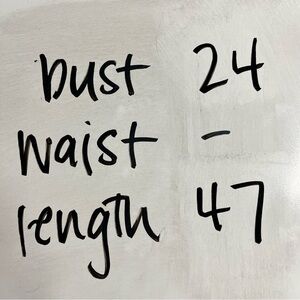 bust 24
waist -
length 47